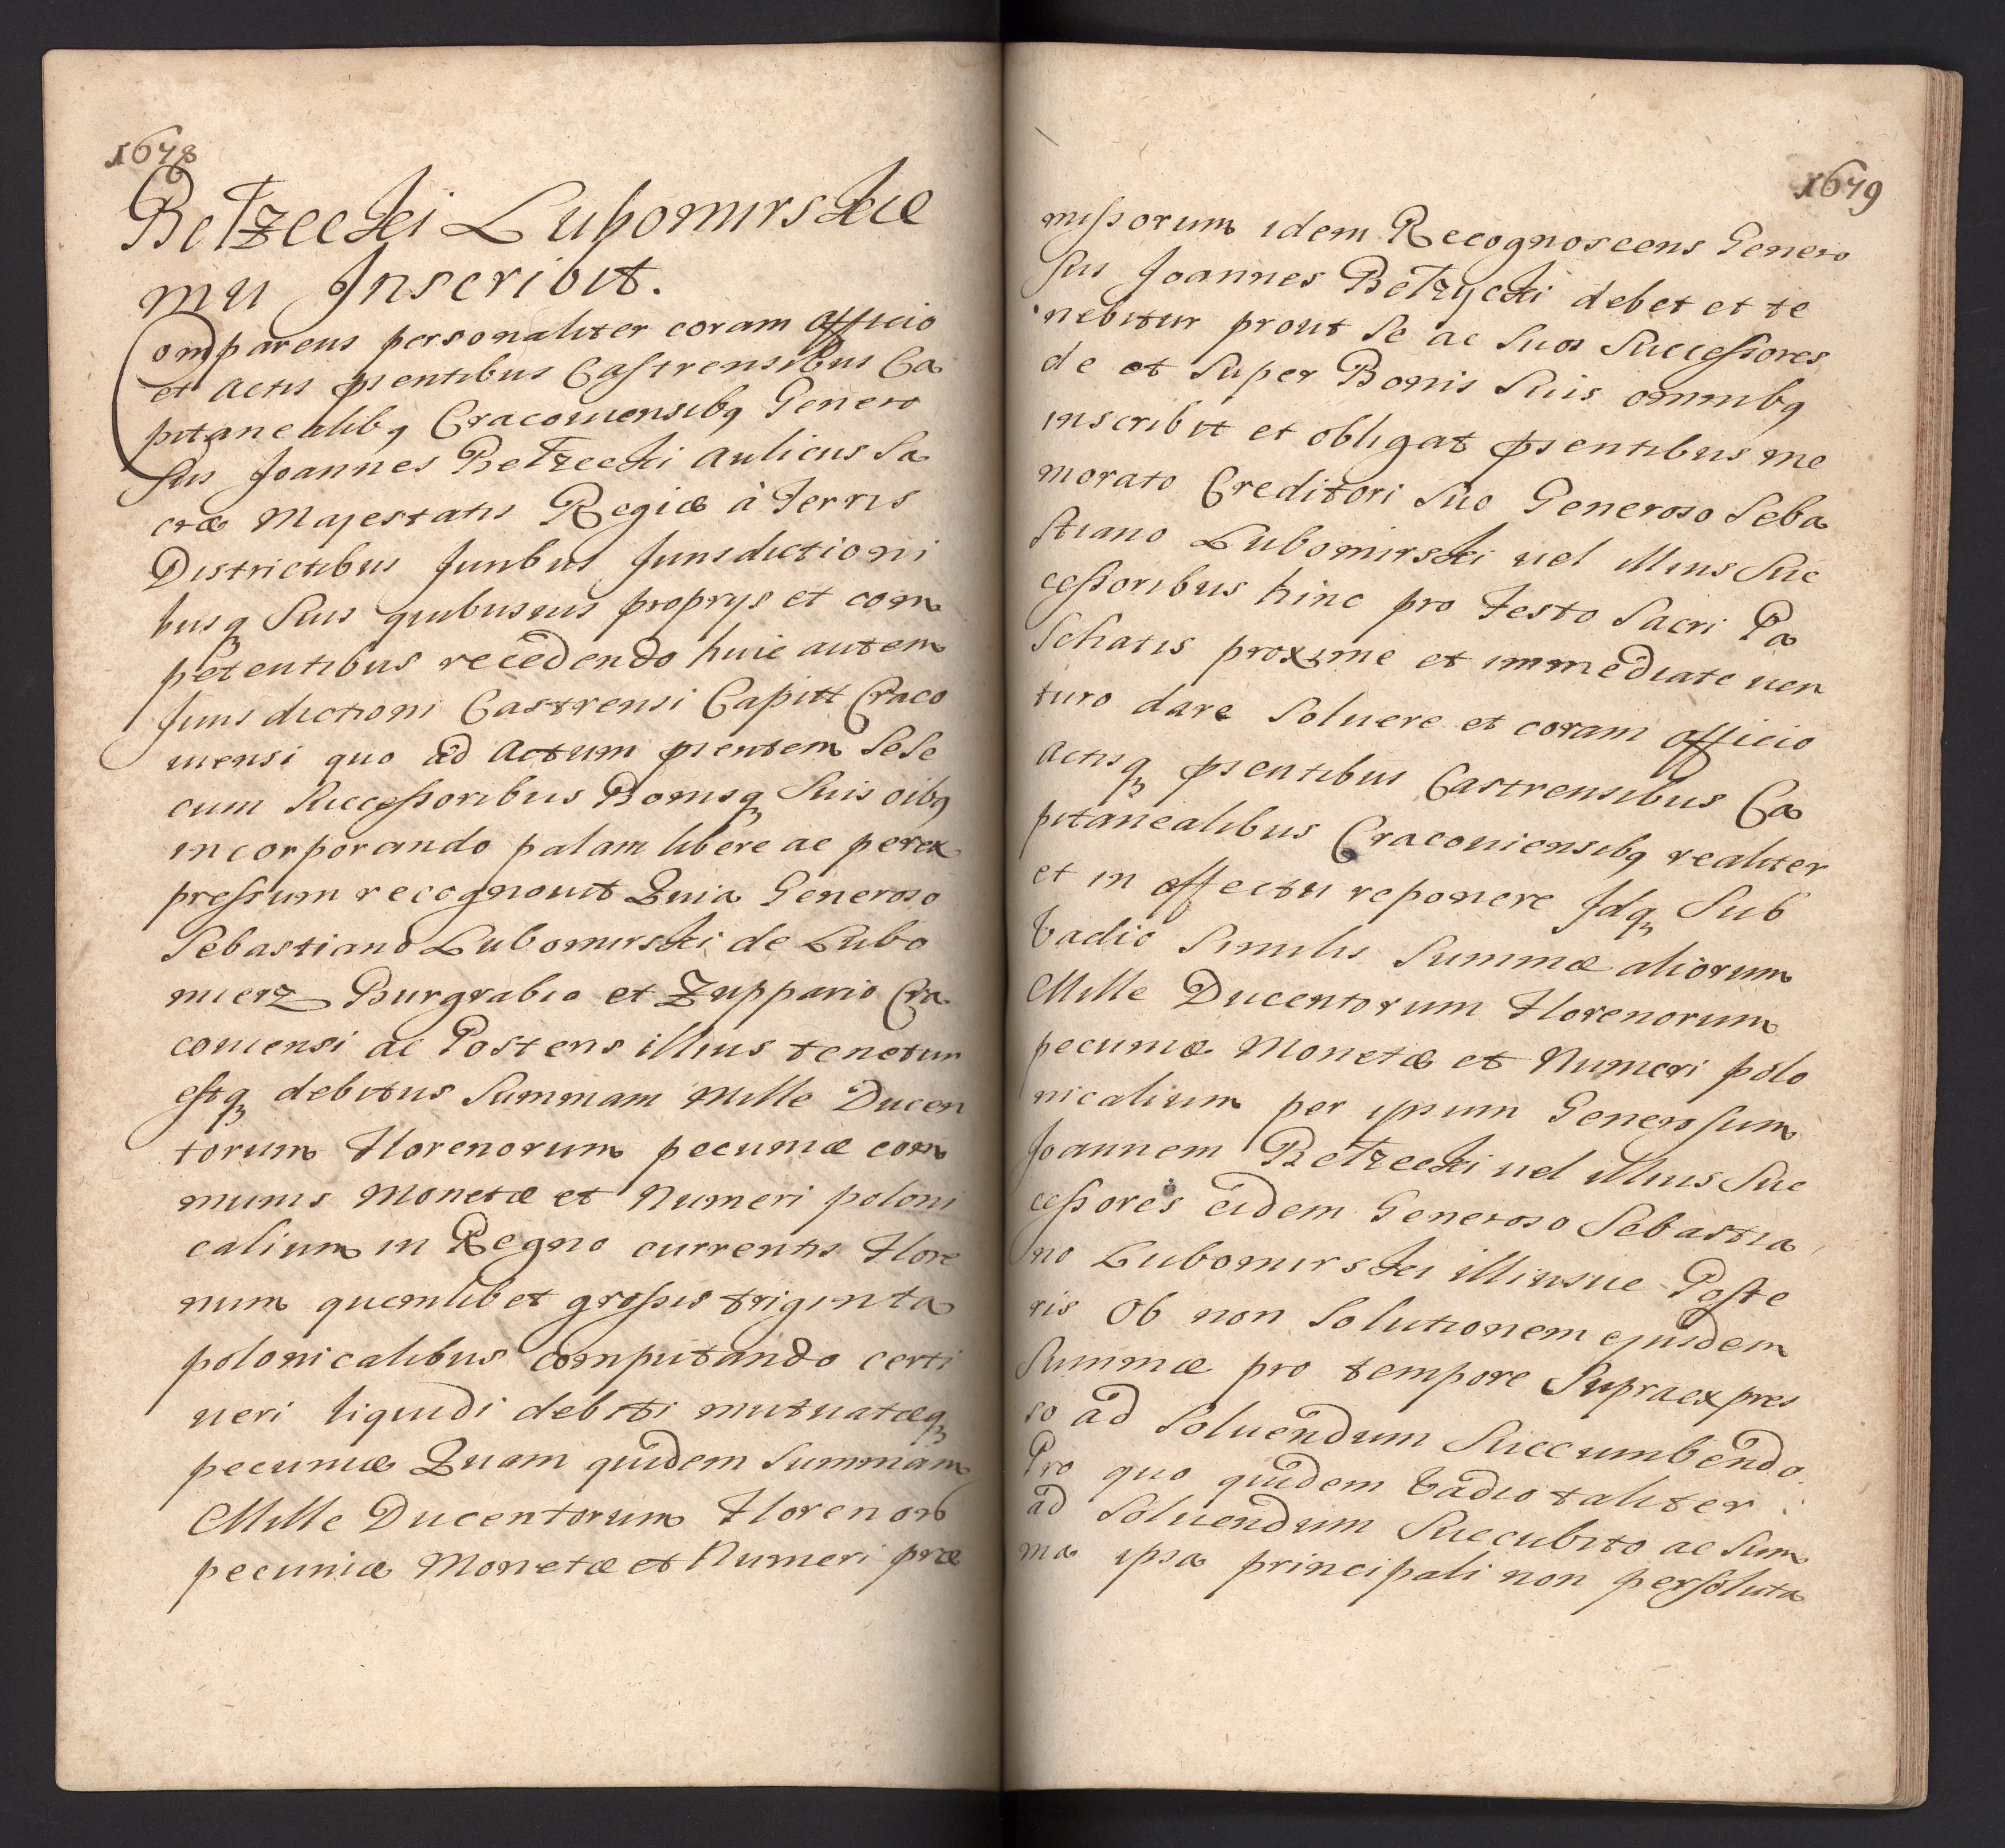 1678
Betzecki Lubomirskie
mu Inscribit.
Comparens personaliter coram officio
et Actis pñentibus Castrensibus Ca
pitanealibq Cracouiensibq Genero
sus Joannes Betzecki Aulicus Sa
cræ Majestatis Regiæ à Terris
Districtibus Juribus Jurisdictioni
busq Suis quibusuis proprys et com
petentibus recedendo huic autem
Jurisdictioni Castrensi Capitt Craco
uiensi quo ad Actum pñentem Sese
cum Successoribus Bonisq Suis oibq
incorporando palam libere ac perex
pressum recognouit Quia Generoso
Sebastiano Lubomirski de Lubo
mierz Burgrabio et Zuppario Cra
couiensi ac Posteris illius tenetur
estq debitus Summam Mille Ducen
torum Florenorum pecuniæ com
munis Monetæ et Numeri poloni
calium in Regno currentis Flore
num quemlibet grossis triginta
polonicalibus computando certi
ueri liquidi debiti mutuatæq
pecuniæ Quam quidem Summam
Mille Ducentorum Florenorb
pecuniæ Monetæ et Numeri præ
1679
missorum idem Recognoscens Genero
sus Joannes Betzycki debet et te
nebitur prout Se ac Suos Successores
de et Super Bonis Suis omnibq
inscribit et obligat pñentibus me
morato Creditori Suo Generoso Seba
stiano Lubomirski uel illius Suc
cessoribus hinc pro Festo Sacri Pa
schatis proxime et immediate uen
turo dare Soluere et coram officio
Actisq pñentibus Castrensibus Ca
pitanealibus Cracouiensibq realiter
et in effectu reponere Idq Sub
Vadio Similis Summæ aliorum
Mille Ducentorum Florenorum
pecuniæ Monetæ et Numeri polo
nicalium per ipsum Generosum
Joannem Betzecki uel illius Suc
cessores eidem Generoso Sebastia
no Lubomirski illiusue Poste
ris Ob non Solutionem ejusdem
Summæ pro tempore Supraexpres
so ad Soluendum Succumbendo.
Pro quo quidem Vadio taliter
ad Soluendum Succubito ac Sum
ma ipsa principali non persoluta